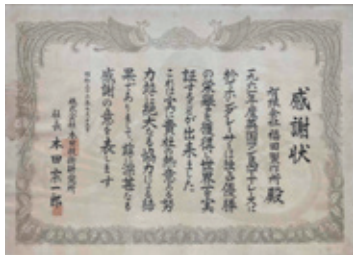 感謝状
有限会社 福田製作所 殿
一九六一年度英国マン島TTレースに
於てホンダレーサーは独占優勝
の栄誉を獲得し世界一を実
証することが出来ました
これは実に貴社の熱意と努
力並に絶大なる協力による結
果でありまして茲に深甚なる
感謝の意を表します
株式会社 本田技術研究所
社長 本田宗一郎